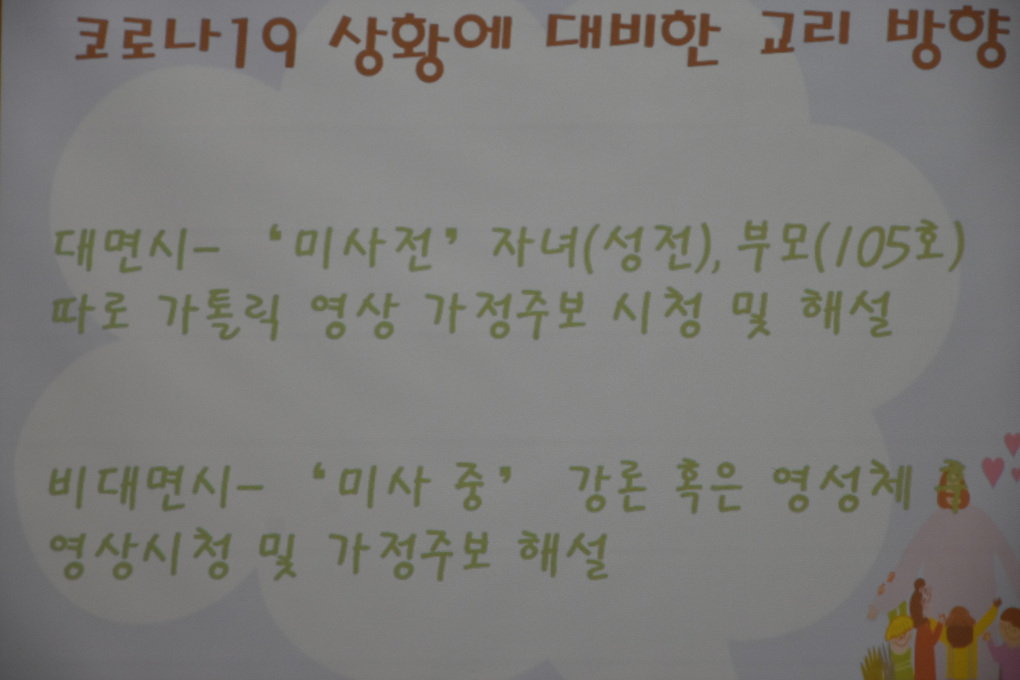 코로나19 상황에 대비한 교리 방향
대면시- ‘미사전’ 자녀(성전), 부모(105호)
따로 가톨릭 영상 가정주보 시청 및 해설
비대면시- ‘미사 중’ 강론 혹은 영성체 후
영상시청 및 가정주보 해설